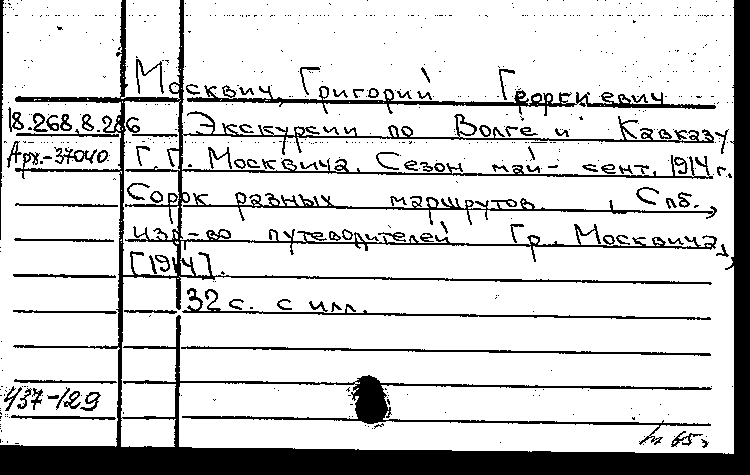 Москвич, Григорий Георгиевич
18.268.8.286 Экскурсии по Волге и Кавказу
Арх.-37040 Г.Г. Москвича. Сезон май - сент. 1914 г.
Сорок разных маршрутов. , Спб.,
изд-во путеводителей Гр. Москвича,
[1914].
32 с. с илл.
437-129